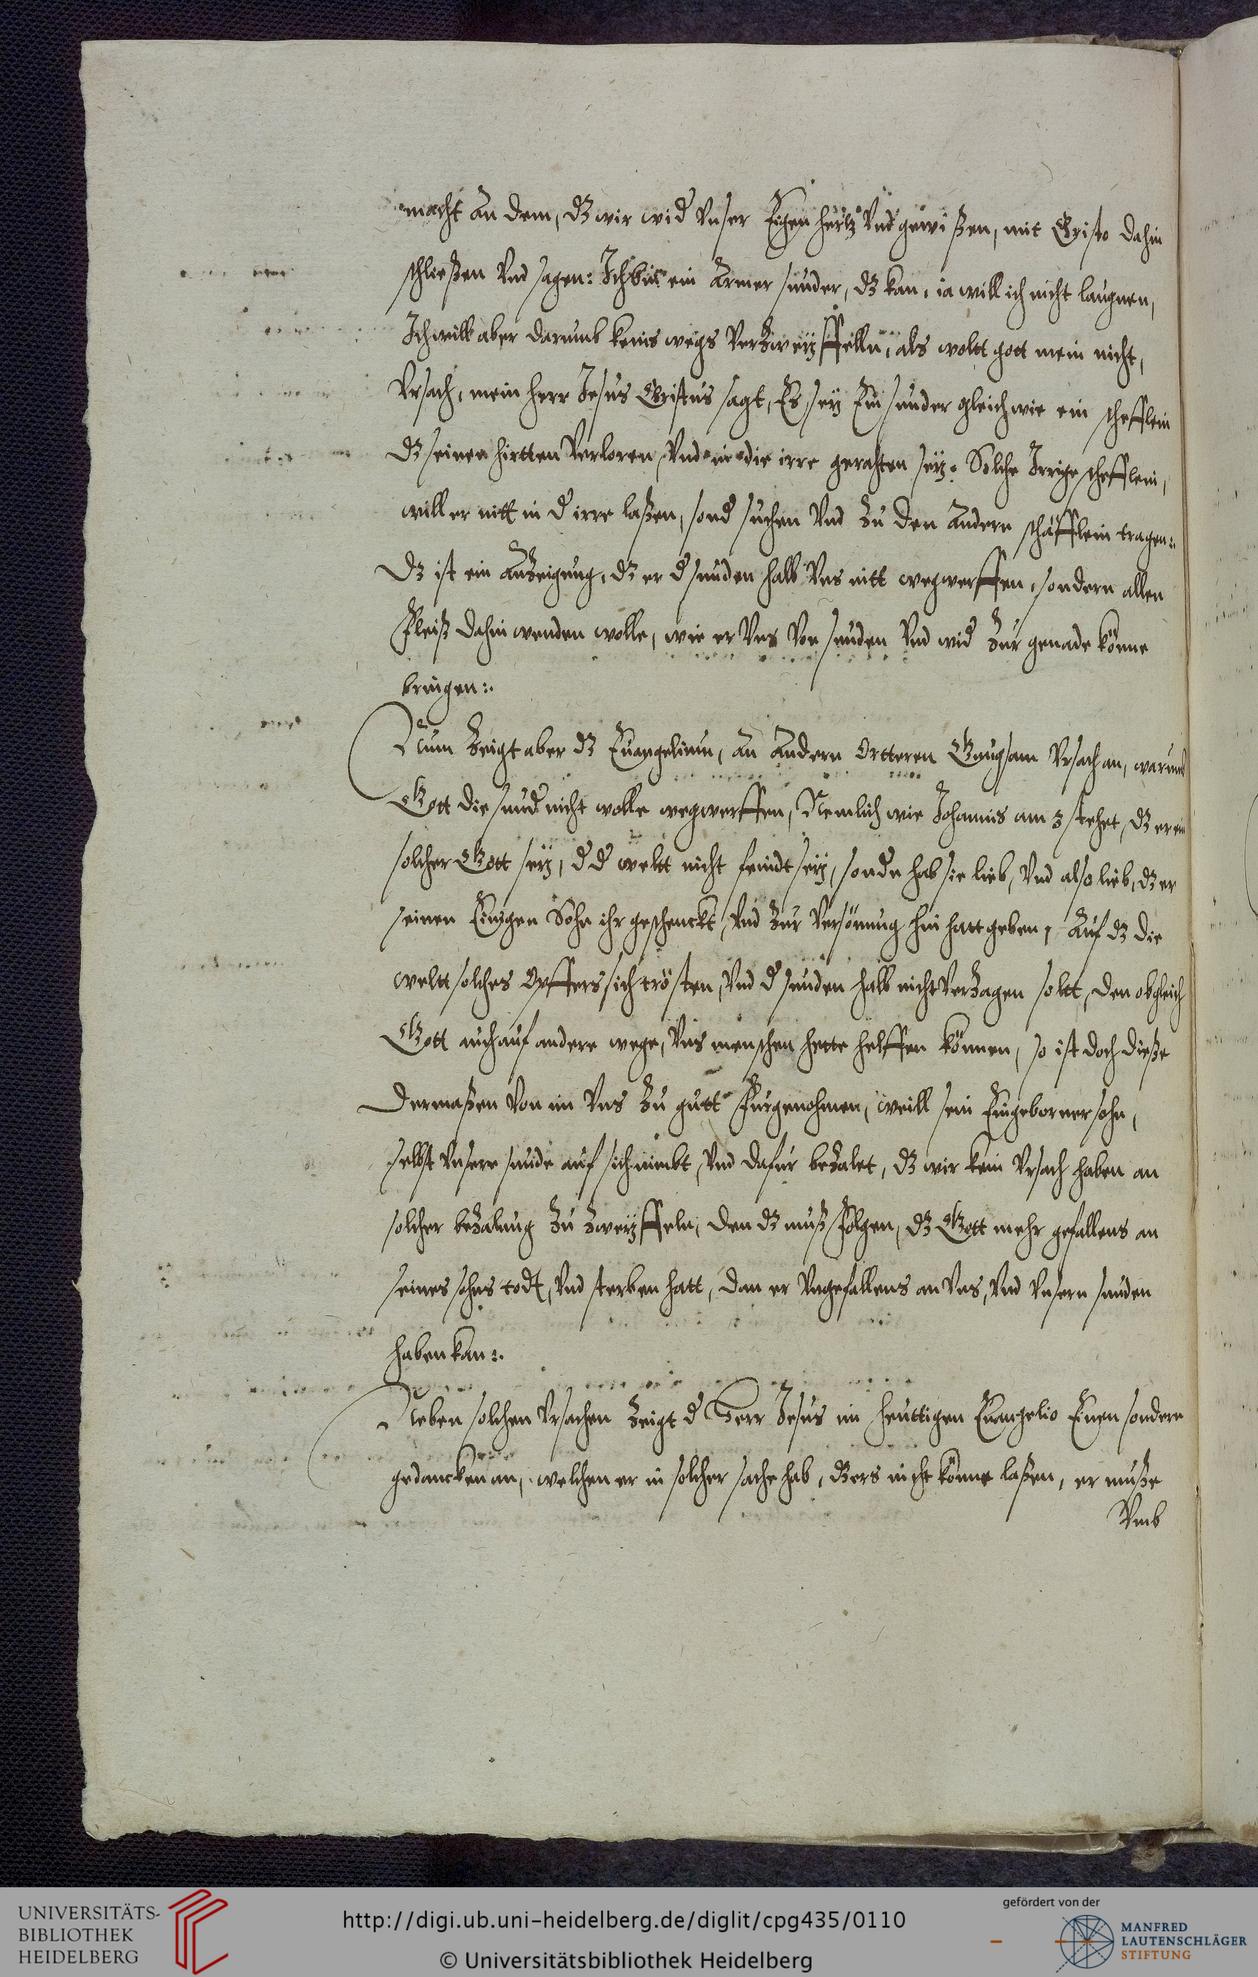 macht an dem, dz wir wid vnser Eigen hertz vnd gewißen, mit Christo dahin
schließen vnd sagen: Ich bin ein Armer sunder, dz kan, ia will ich nicht laugnen,
Ich will aber darumb keins wegs verzweyffelln, als woltt gott mein nicht,
Vrsach, mein herr Jesus Christus sagt, Es sey Ein sunder gleich wie ein schefflein
dz seinen hirtten verloren, vnd in die irre gerahten sey: Solche Irrige schefflein,
will er nitt in d irre laßen, sond suchen vnd zu den Andern schäfflein tragen:
Dz ist ein Anzeigung, dz er d sunden halb vns nitt wegwerffen, sondern allen
Fleiß dahin wenden wolle, wie er vns von sunden vnd wid zur genade könne
bringen:
Nun zeigt aber dz Euangelium, an Andern Ortteren Gnugsam vrsach an, warumb
Gott die sund nicht wolle wegwerffen, Nemlich wie Johannis am 3 stehet, dz er ein
solcher Gott sey, d d weltt nicht feindt sey, sonden hab sie lieb, vnd also lieb, dz er
seinen Einigen Sohn ihr geschenckt, vnd zur versönung hin hatt geben, Auf dz die
weltt solches Opffers sich trösten, vnd d sunden halb nicht verzagen soltt, den obgleich
Gott auch auf andere wege, vns menschen hette helffen können, so ist doch dieße
dermaßen von im vns zu gutt Furgenohmen, weill sein Eingeborner sohn,
selbst vnsere sunde auf sich nimbt, vnd dafür bezalet, dz wir kein vrsach haben an
solcher bezalung zu zweyffeln, den dz muß folgen, dz Gott mehr gefallens an
seines sohns todt, vnd sterben hatt, dan er vngefallens an vns, vnd vnsern sunden
haben kan:
Neben solchen vrsachen zeigt d Herr Jesus im heuttigen Euangelio Einen sondern
gedancken an, welchen er in solcher sache hab, dz ers nicht könne laßen, er muße
Vmb
UNIVERSITÄTS-
BIBLIOTHEK
HEIDELBERG
http://digi.ub.uni-heidelberg.de/diglit/cpg435/0110
© Universitätsbibliothek Heidelberg
gefördert von der
MANFRED
LAUTENSCHLÄGER
STIFTUNG